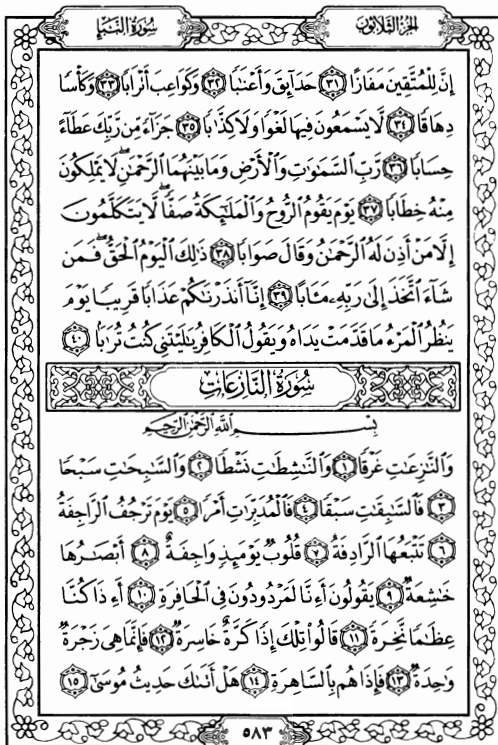 الجزء الثلاثون
سورة النبإ
إِنَّ لِلْمُتَّقِينَ مَفَازًا ٣١ حَدَآئِقَ وَأَعْنَٰبًا ٣٢ وَكَوَاعِبَ أَتْرَابًا ٣٣ وَكَأْسًا
دِهَاقًا ٣٤ لَّا يَسْمَعُونَ فِيهَا لَغْوًا وَلَا كِذَّٰبًا ٣٥ جَزَآءً مِّن رَّبِّكَ عَطَآءً
حِسَابًا ٣٦ رَّبِّ ٱلسَّمَٰوَٰتِ وَٱلْأَرْضِ وَمَا بَيْنَهُمَا ٱلرَّحْمَٰنِ ۖ لَا يَمْلِكُونَ
مِنْهُ خِطَابًا ٣٧ يَوْمَ يَقُومُ ٱلرُّوحُ وَٱلْمَلَٰٓئِكَةُ صَفًّا ۖ لَّا يَتَكَلَّمُونَ
إِلَّا مَنْ أَذِنَ لَهُ ٱلرَّحْمَٰنُ وَقَالَ صَوَابًا ٣٨ ذَٰلِكَ ٱلْيَوْمُ ٱلْحَقُّ ۖ فَمَن
شَآءَ ٱتَّخَذَ إِلَىٰ رَبِّهِۦ مَـَٔابًا ٣٩ إِنَّآ أَنذَرْنَٰكُمْ عَذَابًا قَرِيبًا يَوْمَ
يَنظُرُ ٱلْمَرْءُ مَا قَدَّمَتْ يَدَاهُ وَيَقُولُ ٱلْكَافِرُ يَٰلَيْتَنِى كُنتُ تُرَٰبًا ٤٠
سورة النازعات
بِسْمِ ٱللَّهِ ٱلرَّحْمَٰنِ ٱلرَّحِيمِ
وَٱلنَّٰزِعَٰتِ غَرْقًا ١ وَٱلنَّٰشِطَٰتِ نَشْطًا ٢ وَٱلسَّٰبِحَٰتِ سَبْحًا
٣ فَٱلسَّٰبِقَٰتِ سَبْقًا ٤ فَٱلْمُدَبِّرَٰتِ أَمْرًا ٥ يَوْمَ تَرْجُفُ ٱلرَّاجِفَةُ
٦ تَتْبَعُهَا ٱلرَّادِفَةُ ٧ قُلُوبٌ يَوْمَئِذٍ وَاجِفَةٌ ٨ أَبْصَٰرُهَا
خَٰشِعَةٌ ٩ يَقُولُونَ أَءِنَّا لَمَرْدُودُونَ فِى ٱلْحَافِرَةِ ١٠ أَءِذَا كُنَّا
عِظَٰمًا نَّخِرَةً ١١ قَالُوا۟ تِلْكَ إِذًا كَرَّةٌ خَاسِرَةٌ ١٢ فَإِنَّمَا هِىَ زَجْرَةٌ
وَٰحِدَةٌ ١٣ فَإِذَا هُم بِٱلسَّاهِرَةِ ١٤ هَلْ أَتَىٰكَ حَدِيثُ مُوسَىٰٓ ١٥
٥٨٣